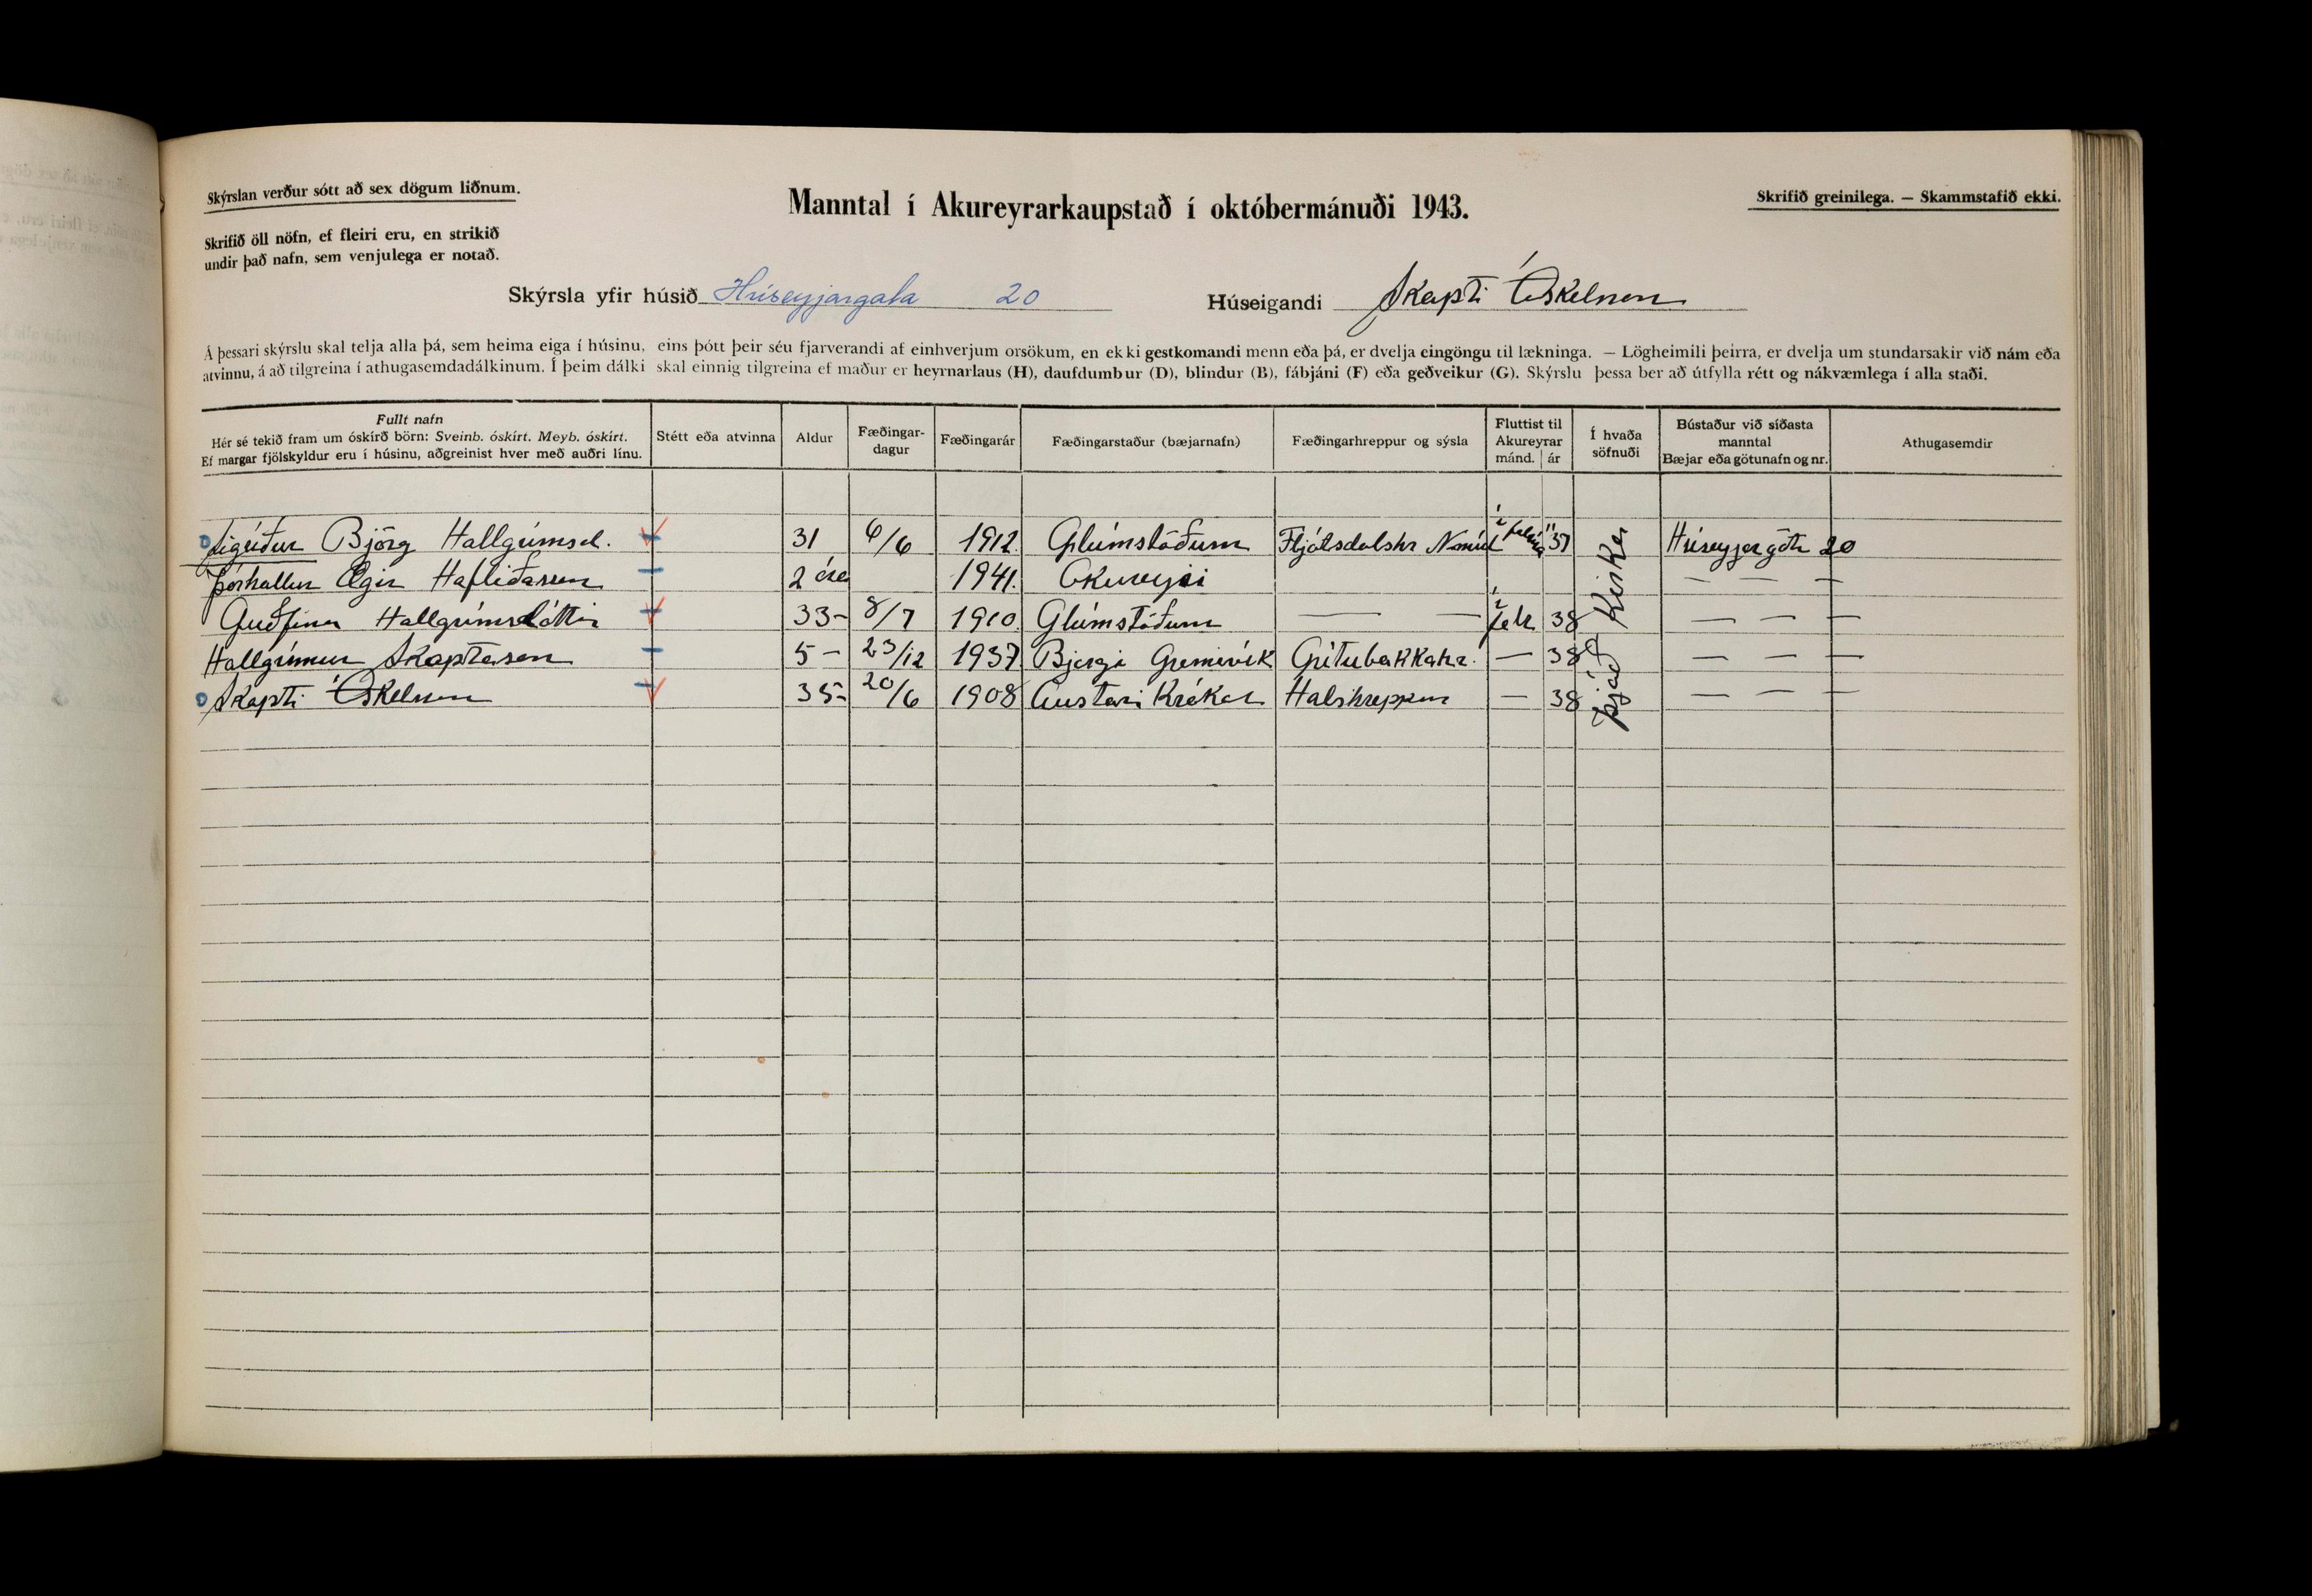 Skýrslan verður sótt að sex dögum liðnum.
Manntal í Akureyrarkaupstað í októbermánuði 1943.
Skrifið greinilega. — Skammstafið ekki.
Skrifið öll nöfn, ef fleiri eru, en strikið
undir það nafn, sem venjulega er notað.
Skýrsla yfir húsið Hríseyjargata 20 Húseigandi Skapti Áskelsson
Á þessari skýrslu skal telja alla þá, sem heima eiga í húsinu, eins þótt þeir séu fjarverandi af einhverjum orsökum, en ekki gestkomandi menn eða þá, er dvelja eingöngu til lækninga. — Lögheimili þeirra, er dvelja um stundarsakir við nám eða
atvinnu, á að tilgreina í athugasemdadálkinum. Í þeim dálki skal einnig tilgreina ef maður er heyrnarlaus (H), daufdumbur (D), blindur (B), fábjáni (F) eða geðveikur (G). Skýrslu þessa ber að útfylla rétt og nákvæmlega í alla staði.
Fullt nafn
Hér sé tekið fram um óskírð börn: Sveinb. óskírt. Meyb. óskírt.
Ef margar fjölskyldur eru í húsinu, aðgreinist hver með auðri línu.
Stétt eða atvinna
Aldur
Fæðingar-
dagur
Fæðingarár
Fæðingarstaður (bæjarnafn)
Fæðingarhreppur og sýsla
Fluttist til
Akureyrar
mánd. ár
Í hvaða
söfnuði
Bústaður við síðasta
manntal
Bæjar eða götunafn og nr.
Athugasemdir
Sigríður Björg Hallgrímsd. 31 6/6 1912 Glúmstöðum Fljótsdalshr N múl í 37 Hríseyjargötu 20
Þórhallur Ægir Hafliðason 2 ára 1941. Akureyri — — —
Guðfinna Hallgrímsdóttir 33 - 8/7 1910 Glúmstöðum — — í febr 38 — — —
Hallgrímur Skaptason 5 - 23/12 1937 Bjargi Grenivík Grítubakkahr. — 38 — — —
Skapti Áskelsson 35 - 20/6 1908 Austari Krókar Halshreppur — 38 — — —
Þjóð Kirkja